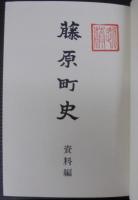 藤原町史
資料編